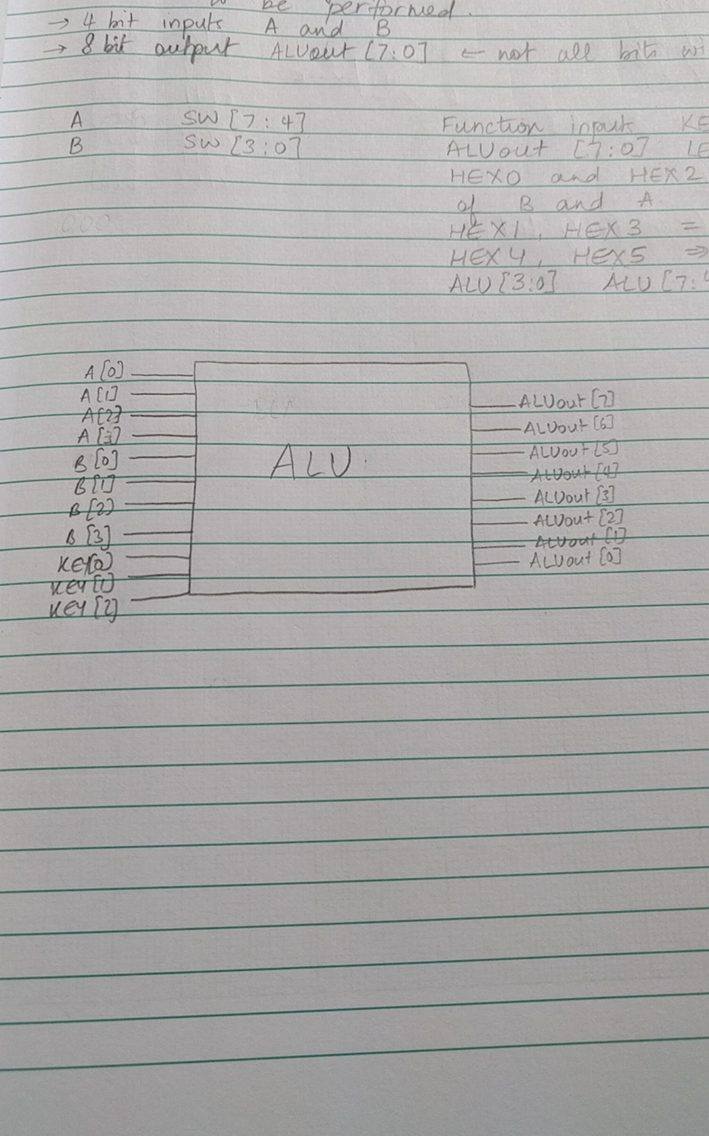 be performed.
→ 4 bit inputs A and B
→ 8 bit output ALUout [7:0] ← not all bits wi
A SW [7:4] Function inputs KE
B SW [3:0] ALUout [7:0] LE
HEX0 and HEX2
of B and A
HEX1, HEX3 =
HEX4, HEX5 ⇒
ALU[3:0] ALU[7:4
A[0]
A[1]
A[2]
A[3]
B[0]
B[1]
B[2]
B[3]
KEY[0]
KEY[1]
KEY[2]
ALU
ALUout [7]
ALUout [6]
ALUout [5]
ALUout [4]
ALUout [3]
ALUout [2]
ALUout [1]
ALUout [0]